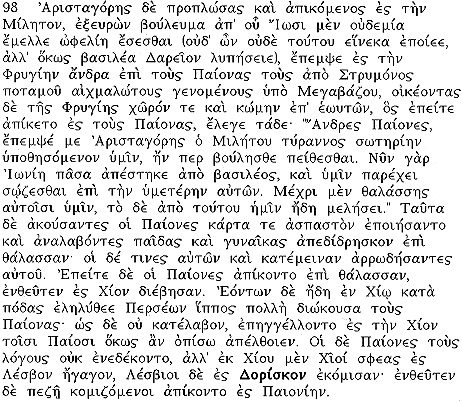 98 Ἀρισταγόρης δὲ προπλώσας καὶ ἀπικόμενος ἐς τὴν
Μίλητον, ἐξευρὼν βούλευμα ἀπ' οὗ Ἴωσι μὲν οὐδεμία
ἔμελλε ὠφελίη ἔσεσθαι (οὐδ' ὦν οὐδὲ τούτου εἵνεκα ἐποίεε,
ἀλλ' ὅκως βασιλέα Δαρεῖον λυπήσειε), ἔπεμψε ἐς τὴν
Φρυγίην ἄνδρα ἐπὶ τοὺς Παίονας τοὺς ἀπὸ Στρυμόνος
ποταμοῦ αἰχμαλώτους γενομένους ὑπὸ Μεγαβάζου, οἰκέοντας
δὲ τῆς Φρυγίης χῶρόν τε καὶ κώμην ἐπ' ἑωυτῶν, ὃς ἐπείτε
ἀπίκετο ἐς τοὺς Παίονας, ἔλεγε τάδε· "Ἄνδρες Παίονες,
ἔπεμψέ με Ἀρισταγόρης ὁ Μιλήτου τύραννος σωτηρίην
ὑποθησόμενον ὑμῖν, ἤν περ βούλησθε πείθεσθαι. Νῦν γὰρ
Ἰωνίη πᾶσα ἀπέστηκε ἀπὸ βασιλέος, καὶ ὑμῖν παρέχει
σῴζεσθαι ἐπὶ τὴν ὑμετέρην αὐτῶν. Μέχρι μὲν θαλάσσης
αὐτοῖσι ὑμῖν, τὸ δὲ ἀπὸ τούτου ἡμῖν ἤδη μελήσει." Ταῦτα
δὲ ἀκούσαντες οἱ Παίονες κάρτα τε ἀσπαστὸν ἐποιήσαντο
καὶ ἀναλαβόντες παῖδας καὶ γυναῖκας ἀπεδίδρησκον ἐπὶ
θάλασσαν· οἱ δέ τινες αὐτῶν καὶ κατέμειναν ἀρρωδήσαντες
αὐτοῦ. Ἐπείτε δὲ οἱ Παίονες ἀπίκοντο ἐπὶ θάλασσαν,
ἐνθεῦτεν ἐς Χίον διέβησαν. Ἐόντων δὲ ἤδη ἐν Χίῳ κατὰ
πόδας ἐληλύθεε Περσέων ἵππος πολλὴ διώκουσα τοὺς
Παίονας· ὡς δὲ οὐ κατέλαβον, ἐπηγγέλλοντο ἐς τὴν Χίον
τοῖσι Παίοσι ὅκως ἂν ὀπίσω ἀπέλθοιεν. Οἱ δὲ Παίονες τοὺς
λόγους οὐκ ἐνεδέκοντο, ἀλλ' ἐκ Χίου μὲν Χῖοί σφεας ἐς
Λέσβον ἤγαγον, Λέσβιοι δὲ ἐς Δορίσκον ἐκόμισαν· ἐνθεῦτεν
δὲ πεζῇ κομιζόμενοι ἀπίκοντο ἐς Παιονίην.